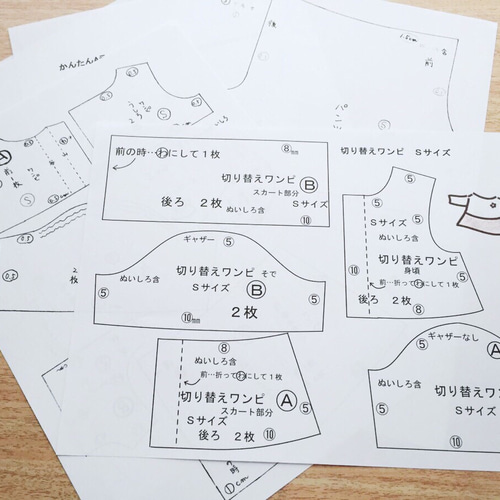 かんたん
前
1.5cm
S
S
A
0.5
0.5
0.5
切り替えワンピ Sサイズ
前の時…わにして1枚
8mm
切り替えワンピ B
スカート部分
後ろ 2枚 Sサイズ
ぬいしろ含
10
ギャザー
5
5
ぬいしろ含
切り替えワンピ そで
Sサイズ B
5
5
2枚
10mm
8
ぬいしろ含
前…折ってわにして1枚
5
5
切り替えワンピ A
スカート部分
Sサイズ
後ろ 2枚 10
5
5
5
Sサイズ
ぬいしろ含
10
切り替えワンピ
身頃
5
前…折ってわにして1枚
後ろ 2枚
10
ギャザーなし
5
A
ぬいしろ含
切り替えワンピ
5
Sサイズ
10
1cm